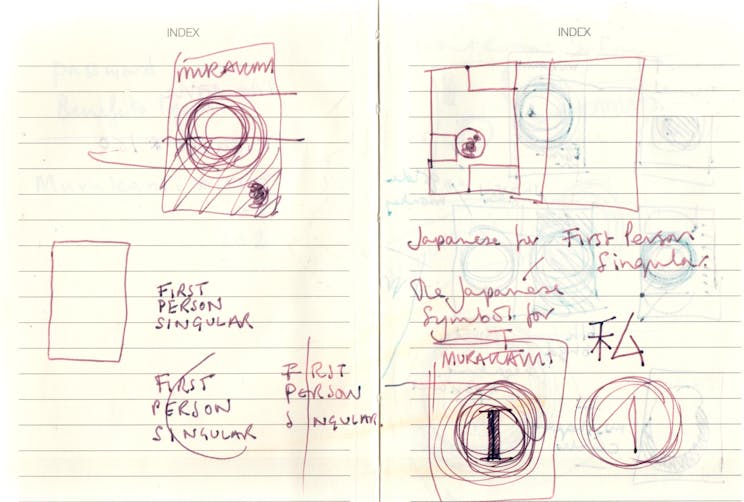 INDEX
MURAKAMI
FIRST
PERSON
SINGULAR
FIRST
PERSON
SINGULAR
FIRST
PERSON
SINGULAR
INDEX
Japanese for First Person
Singular.
The Japanese
Symbol for
I
私
MURAKAMI
I
1